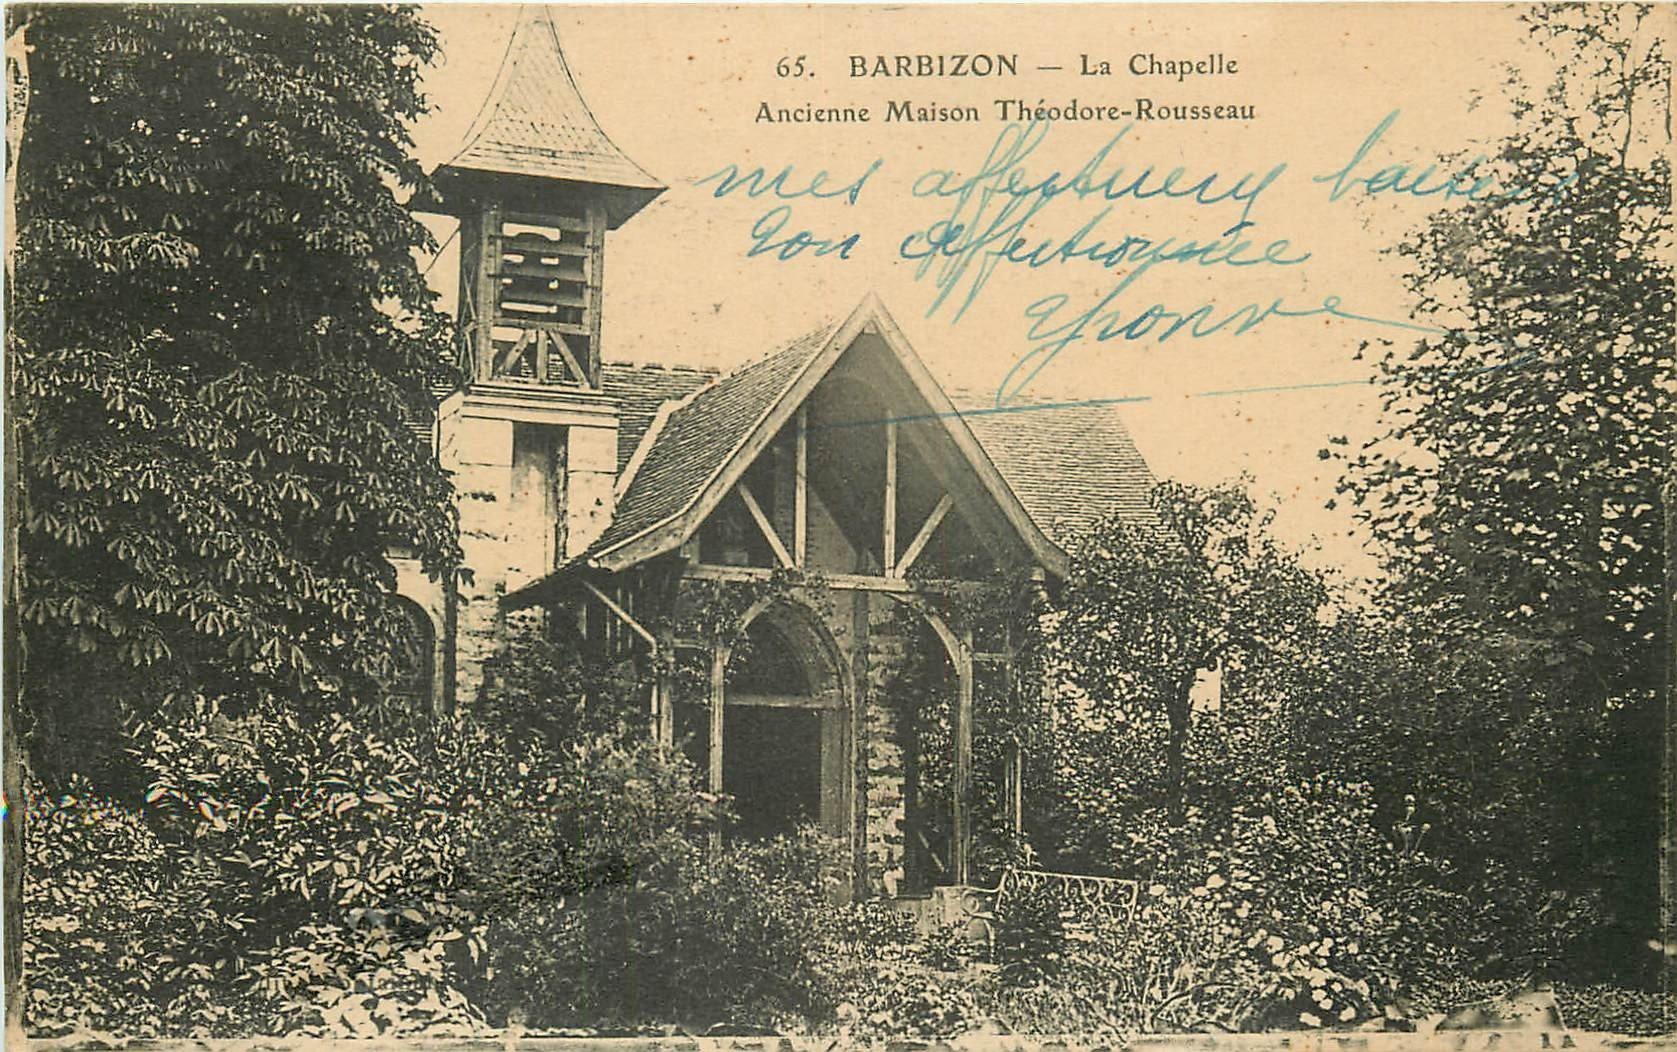 65. BARBIZON — La Chapelle
Ancienne Maison Théodore-Rousseau
mes affectueux baisers
Ton affectionnée
Yvonne